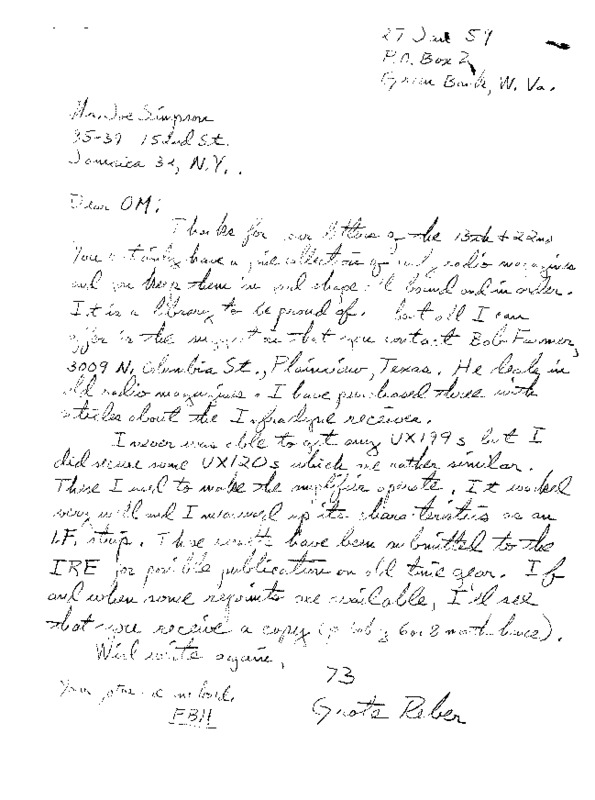 27 Jan 59
P.O. Box 2
Green Bank, W. Va.
Mr. Joe Simpson
35-37 152nd St.
Jamaica 32, N.Y.
Dear OM:
Thanks for your letters of the 13th + 22nd
You certainly have a fine collection of early radio magazines
and you keep them in good shape all bound and in order.
It is a library to be proud of. But all I can
offer is the suggestion that you contact Bob Farmer,
3009 N. Columbia St., Plainview, Texas. He deals in
old radio magazines. I have purchased three with
articles about the Infradyne receiver.
I never was able to get any UX199s but I
did secure some UX120s which are rather similar.
These I used to make the amplifier operate. It worked
very well and I measured up its characteristics as an
I.F. strip. These results have been submitted to the
IRE for possible publication on old time gear. If
and when some reprints are available, I'll see
that you receive a copy (probably 6 or 8 months hence).
Will write again,
73
Your is on hand.
FBH
Grote Reber